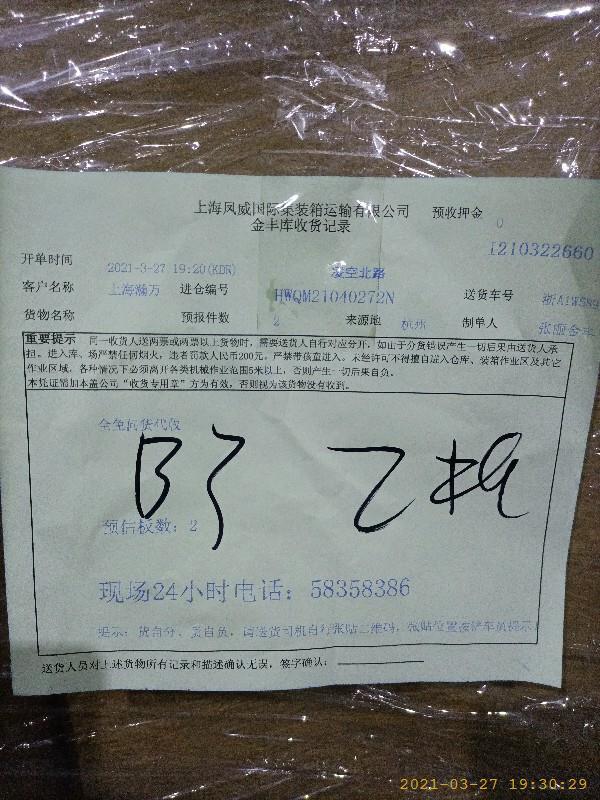 上海风威国际集装箱运输有限公司 预收押金 0
金丰库收货记录
I210322660
开单时间 2021-3-27 19:20(KDR) 凌空北路
客户名称 上海瀚万 进仓编号 HWQM21040272N 送货车号 浙A1W589
货物名称 预报件数 2 来源地 杭州 制单人 张颐合丰
重要提示 同一收货人送两票或两票以上货物时,需要送货人自行对应分开,如由于分货错误产生一切后果由送货人承
担。进入库、场严禁任何烟火,违者罚款人民币200元。严禁带孩童进入。未经许可不得擅自进入仓库、装箱作业区及其它
作业区域,各种情况下必须离开各类机械作业范围5米以上,否则产生一切后果自负。
本凭证需加本盖公司“收货专用章”方为有效,否则视为该货物没有收到。
B3
预估板数:2
现场24小时电话:58358386
提示:货自分、责自负,请送货司机自行张贴二维码,张贴位置按铲车员提示
送货人员对上述货物所有记录和描述确认无误,签字确认:
2021-03-27 19:30:29